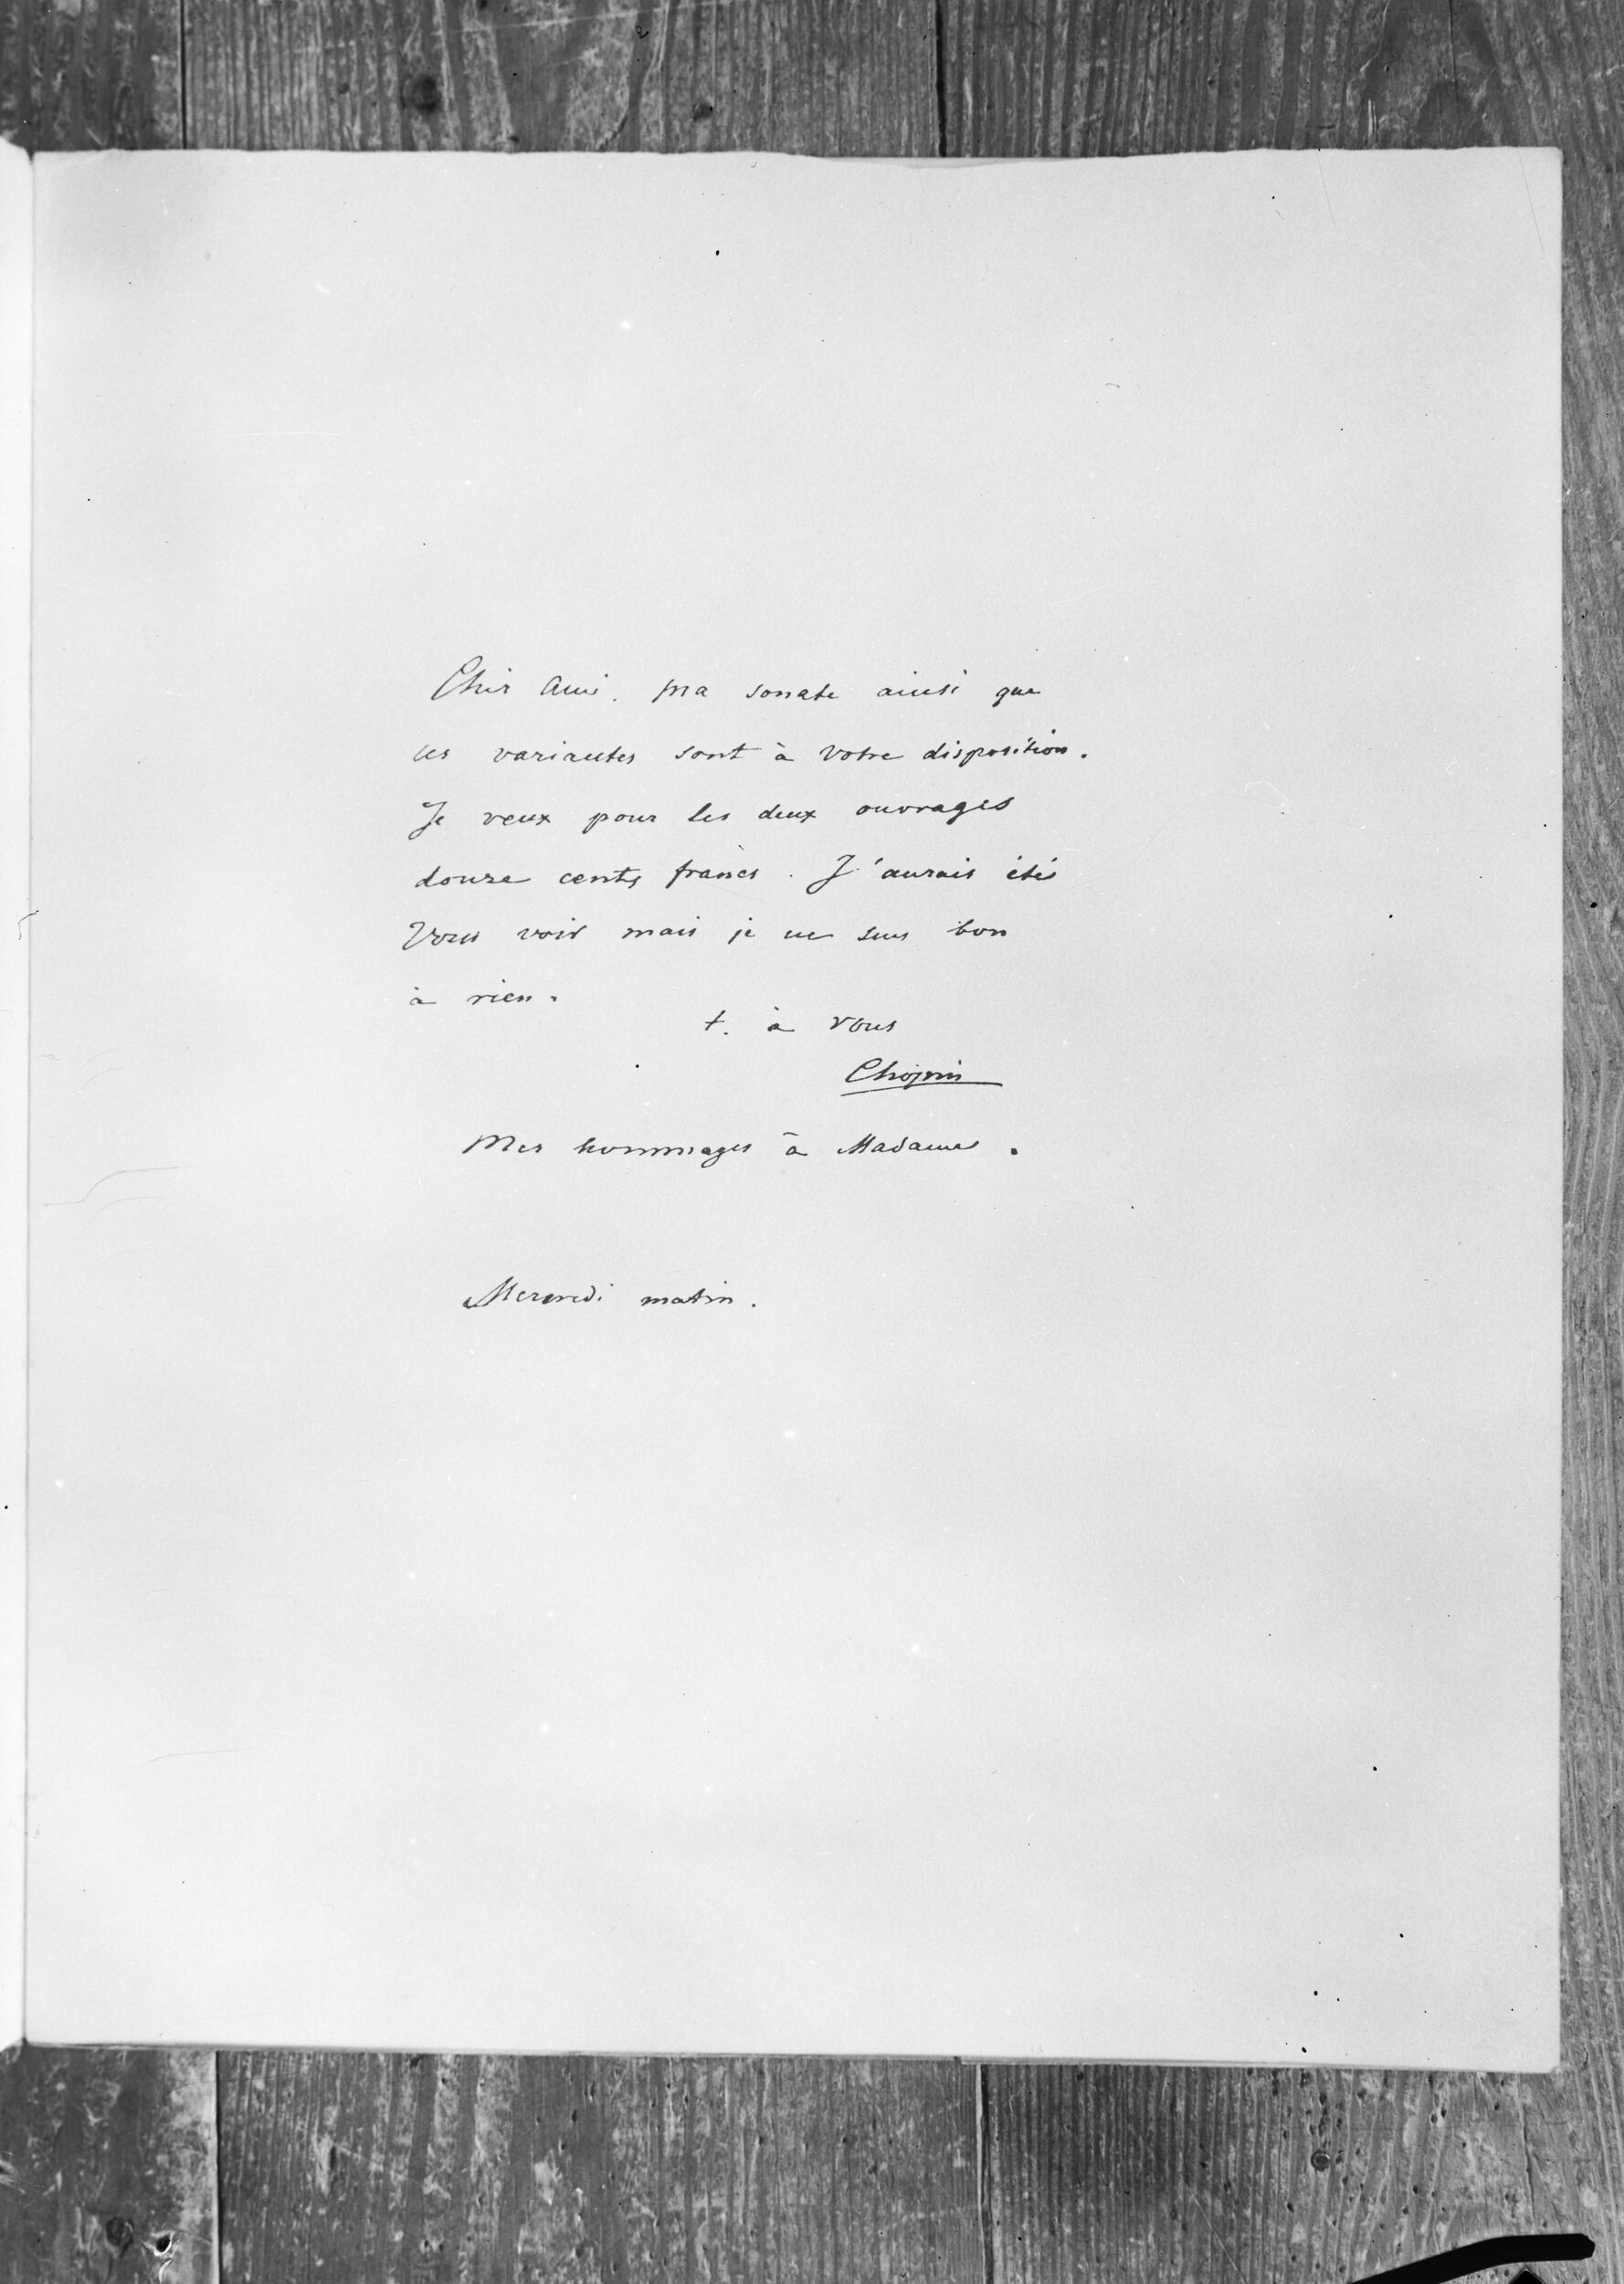 Cher Ami. ma sonate ainsi que
les variantes sont à votre disposition.
Je veux pour les deux ouvrages
douze cents francs. J'aurais été
vous voir mais je ne suis bon
à rien.
t. à vous
Chopin
Mes hommages à Madame.
Mercredi matin.